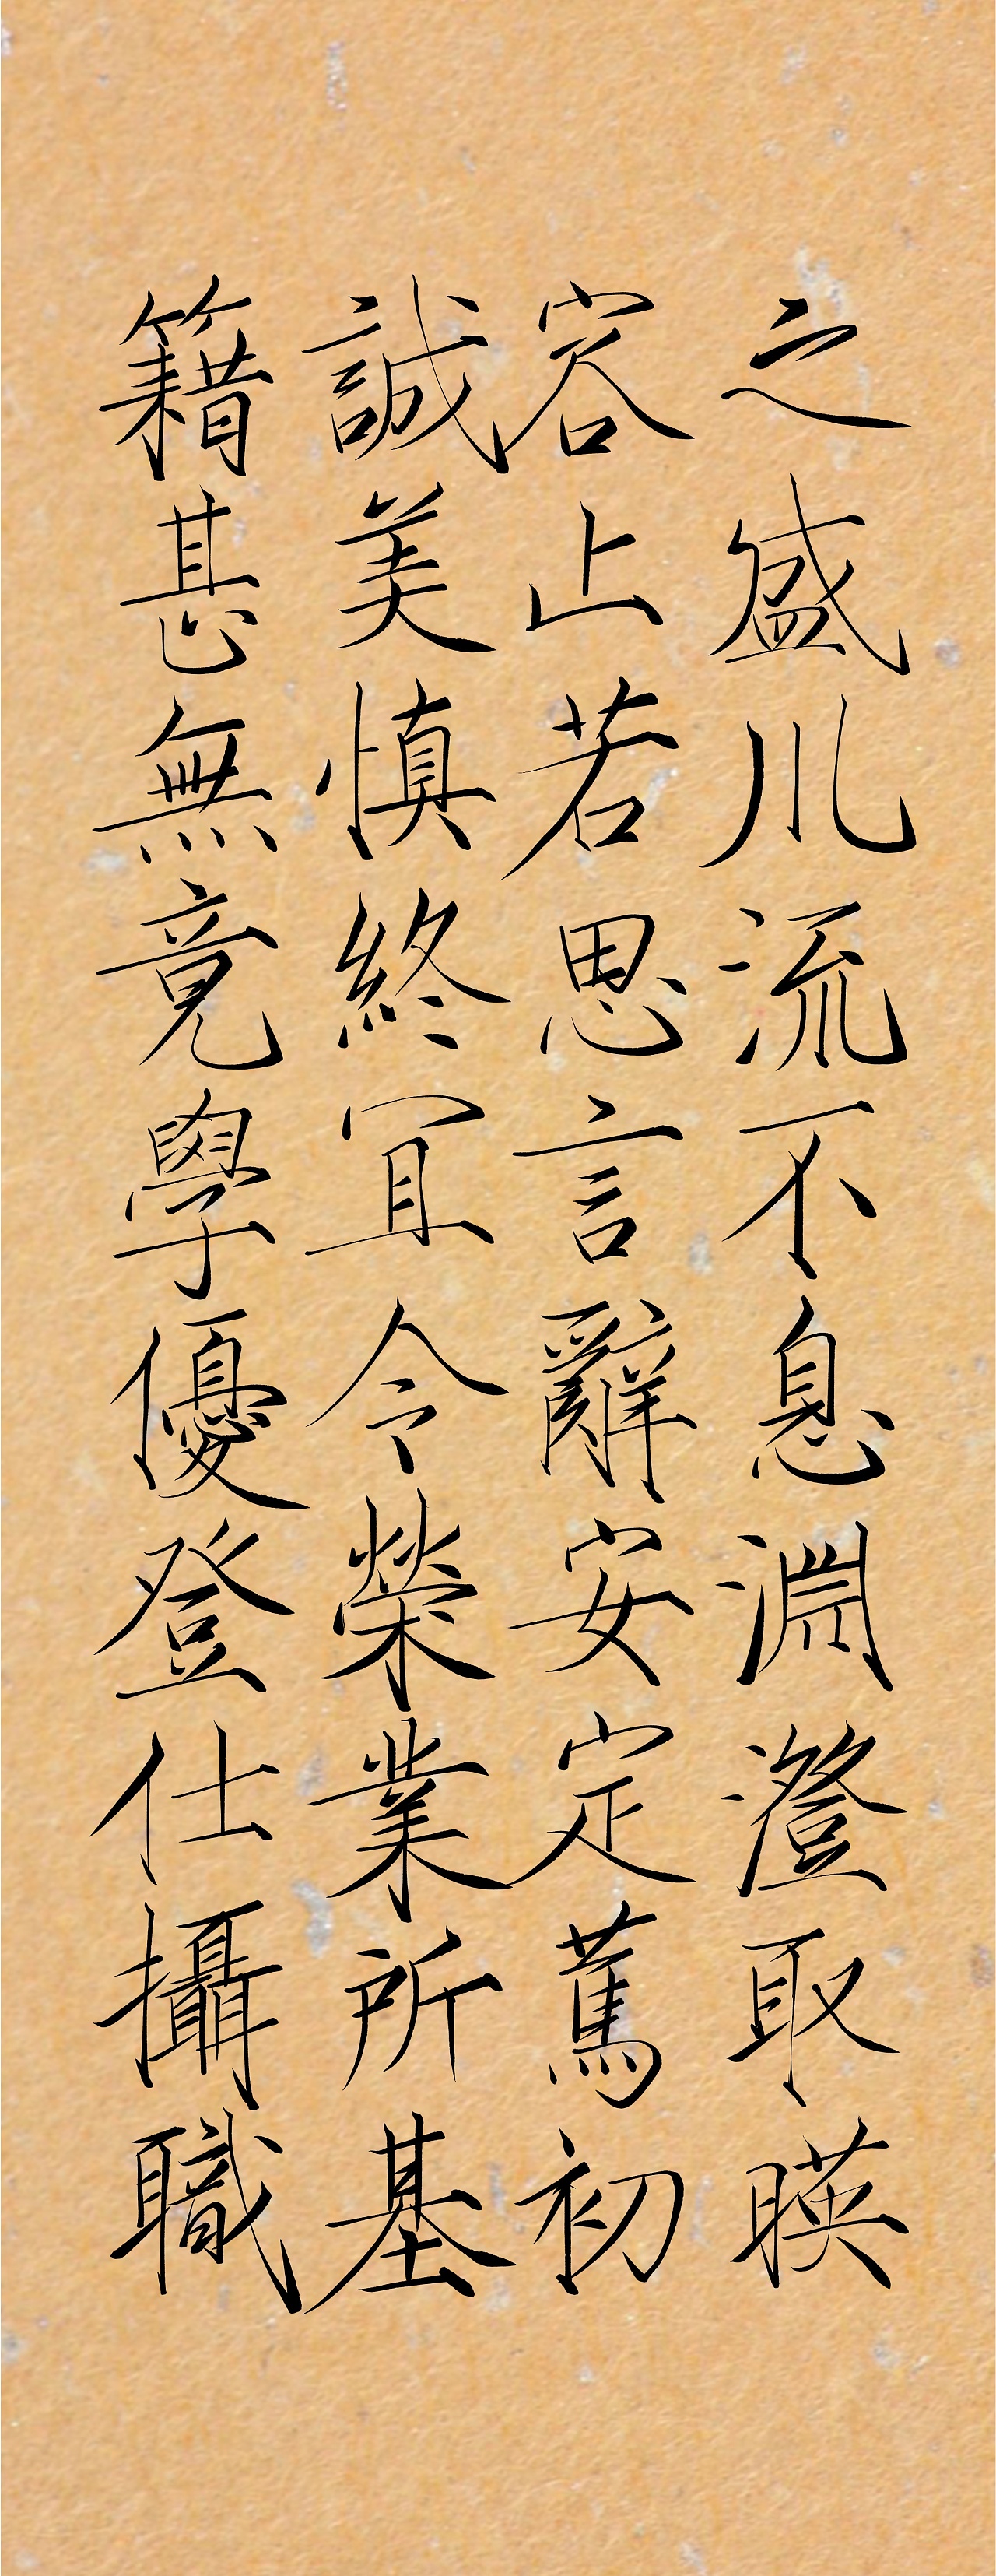 之盛川流不息淵澄取暎
容止若思言辭安定篤初
誠美慎終宜令榮業所基
籍甚無竟學優登仕攝職